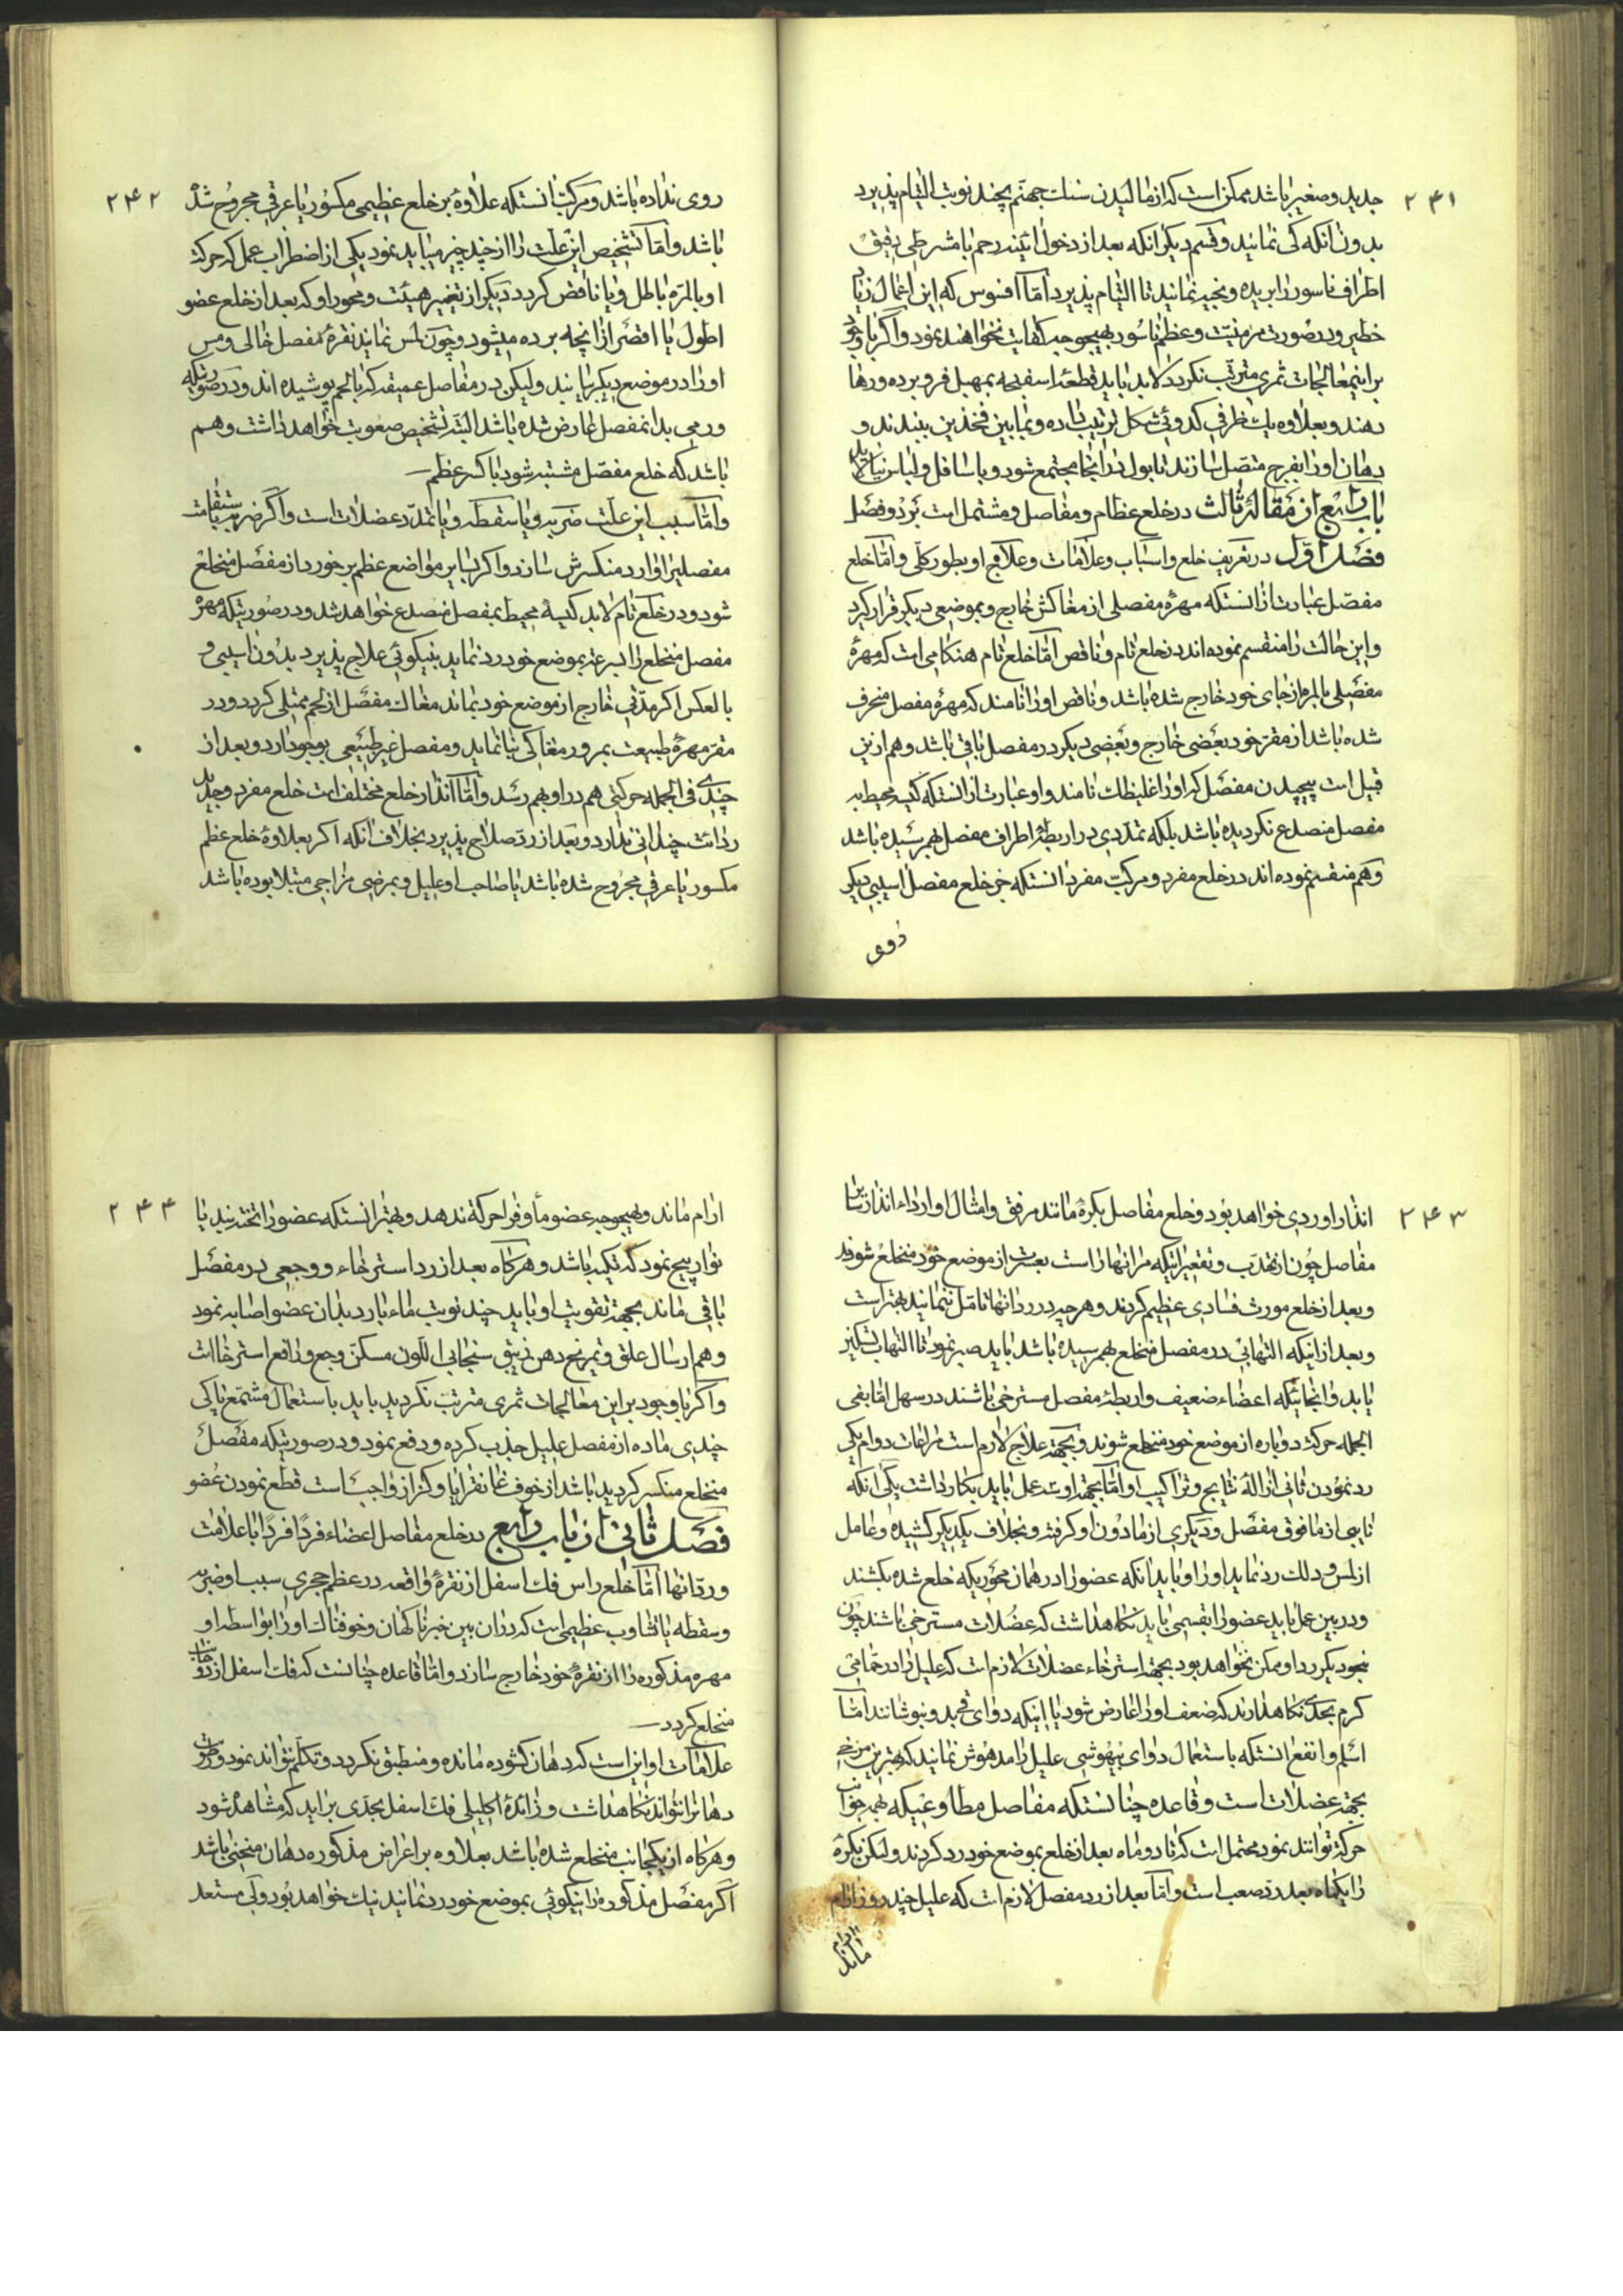 ۲۴۱
جدید و صغیر باشد ممکن است که از مالیدن سنك جهنم بچند نوبت التیام پذیرد
بدون آنکه کی نمایند و قسم دیکر آنکه بعد از دخول آئینه رحم با مشرطی رقیق
اطراف ناسور را بریده و بخیه نمایند تا التیام پذیرد اما افسوس که این اعمال زیاد
خطیر و در صورت مزمنیت و عظم ناسور بهیچوجه کفایت نخواهند نمود و اکر با وجود
براینمعالجات ثمری مترتب نکردد لابد باید قطعه اسفنجه بمهبل فرو برده و رها
دهند و بعلاوه یك ظرفی کدوئی شکل ترتیب داده و مابین فخذین ببندند و
دهان او را بفرج متصل سازند تا بول در انجا مجتمع شود و با سافل و لباس نیالاید
باب رابع از مقالهٔ ثالث در خلع عظام و مفاصل و مشتمل است بر دو فصل
فصل اول در تعریف خلع و اسباب و علامات و علاج او بطور کلی و اما خلع
مفصل عبارت از انستکه مهرهٔ مفصلی از مغاکش خارج و بموضعی دیکر قرار کیرد
و این حالت را منقسم نموده اند در خلع تام و ناقص اما خلع تام هنکامی است که مهرهٔ
مفصلی بالمره از جای خود خارج شده باشد و ناقص او را نامند که مهرهٔ مفصل منحرف
شده باشد از مقر خود بعضی خارج و بعضی دیکر در مفصل باقی باشد و هم ازین
قبیل است پیچیدن مفصل که او را غلیظك نامند و او عبارت از انستکه کیسه محیط به
مفصل منصدع نکردیده باشد بلکه تمددی در اربطهٔ اطراف مفصل بهم رسیده باشد
و هم منقسم نموده اند در خلع مفرد و مرکب مفرد انستکه جز خلع مفصل اسیبی دیکر
روی
۲۴۲
روی نداده باشد و مرکب انستکه علاوه بر خلع عظیمی مکسور یا عرقی مجروح شده
باشد و اما تشخیص این علت را از چند چیز میباید نمود یکی از اضطراب عمل که حرکت
او بالمره باطل و یا ناقص کردد دیکر از تغییر هیئت و محور او که بعد از خلع عضو
اطول یا اقصر از انچه بوده میشود و چون لمس نمایند نقرهٔ مفصل خالی و مس
او را در موضع دیکر نمایند ولیکن در مفاصل عمیقه که با لحم پوشیده اند و در صورتیکه
ورمی بدانمفصل عارض شده باشد البته تشخیص صعوبت خواهد داشت و هم
باشد که خلع مفصل مشتبه شود با کسر عظم
و اما سبب این علت ضربه و یا سقطه و یا تمدد عضلات است و اکر ضربه بشقامت
مفصلیرا وارد منکسرش سازد و اکر بسایر مواضع عظم بر خورد از مفصل منخلع
شود و در خلع تام لابد کیسهٔ محیط بمفصل منصدع خواهد شد و در صورتیکه مهرهٔ
مفصل منخلع را بسرعت بموضع خود رد نماید بنیکوئی علاج پذیرد بدون اسیبی و
بالعکس اکر مدتی خارج از موضع خود بماند مغاك مفصل از لحم ممتلی کردد و در
مقر مهرهٔ طبیعت بمرور مغاکی بنا نماید و مفصل غیر طبیعی بوجود ارد و بعد از
چندی فی الجمله حرکتی هم در او بهم رسد و اما انذار خلع مختلف است خلع مفرد و جدید
ردائت چندانی ندارد و بعد از رد صلاح پذیرد بخلاف آنکه اکر بعلاوهٔ خلع عظم
مکسور یا عرقی مجروح شده باشد یا صاحب او علیل و بمرضی مزاجی مبتلا بوده باشد
۲۴۳
انذار او ردی خواهد بود و خلع مفاصل بکرهٔ مانند مرفق و امثال او ارداء انذار از سایر
مفاصل چون از تحدب و تقعیراتیکه مر انها را است بعسر از موضع خود منخلع شوند
و بعد از خلع مورث فسادی عظیم کردند و هر چه در رد انها تامل ننمایند بهتر است
و بعد از اینکه التهابی در مفصل منخلع بهم رسیده باشد باید صبر نمود تا التهاب تسکین
یابد و انجائیکه اعضاء ضعیف و اربطهٔ مفصل مسترخی باشند در سهل اتفا بفی
الجمله حرکت دوباره از موضع خود منخلع شوند و بجهت علاج لازم است مراعات دو امر یکی
رد نمودن ثانی ازالهٔ نتایج و تراکیب او و اما بجهت اول سه عمل باید بکار داشت یکی آنکه
نایبی از مافوق مفصل و دیکری از مادون او کرفته و بخلاف یکدیکر کشیده و عامل
از لمس و دلك رد نماید او را و باید آنکه عضو را در همان محوریکه خلع شده بکشند
و در بین عمل باید عضو را بقسمی باید نکاهداشت که عضلات مسترخی باشند چون
بخود بکیرد او ممکن نخواهد بود بجهت استرخاء عضلات لازم است که علیل را در حمامی
کرم بحدی نکاهدارند که ضعف او را عارض شود یا اینکه دوای قی بدو بنوشانند اما
اسلم و انفع انستکه باستعمال دوای بیهوشی علیل را مدهوش نمایند که بهترین مرخی
بجهت عضلات است و قاعده چنانستکه مفاصل مطاوعی که بهر جوانب
حرکت توانند نمود محتمل است که تا دو ماه بعد از خلع بموضع خود رد کردند ولیکن بکرهٔ
را یکماه بعد رد صعب است و اما بعد از رد مفصل لازم است که علیل چند روز ارام
ماند
۲۴۴
ارام ماند و بهیچوجه عضو مأوف را حرکت ندهد و بهتر انستکه عضو را تخته بند یا
نوار پیچ نمود که تکیه باشد و هرکاه بعد از رد استرخاء و وجعی در مفصل
باقی ماند بجهت تقویت او باید چند نوبت ماء بارد بدان عضو اصابه نمود
و هم ارسال علق و تمریخ دهن زیبق سنجابی اللون مسکن وجع و رافع استرخا است
و اکر با وجود براین معالجات ثمری مترتب نکردید باید باستعمال مشمع یا کی
چندی ماده از مفصل علیل جذب کرده و دفع نمود و در صورتیکه مفصل
منخلع منکسر کردید باشد از خوف غانقرایا و کزاز واجب است قطع نمودن عضو
فصل ثانی از باب رابع در خلع مفاصل اعضاء فرداً فرداً با علامت
و رد انها اما خلع راس فك اسفل از نقرهٔ واقعه در عظم حجری سبب او ضربه
و سقطه یا تثاوب عظیمی است که در ان بین خبر ناکهان و خوفناك او را بواسطه او
مهره مذکوره را از نقرهٔ خود خارج سازد و اما قاعده چنانست که فك اسفل از دو جانب
منخلع کردد
علامات او این است که دهان کشوده مانده و منطبق نکردد و تکلم نتواند نمود و رطوبت
دهانرا نتواند نکاهداشت و زائدهٔ اکلیلی فك اسفل بحدی براید که مشاهده شود
و هرکاه از یکجانب منخلع شده باشد بعلاوه بر اعراض مذکوره دهان منحنی باشد
اکر مفصل مذکوره را بنیکوئی بموضع خود رد نمانید نیك خواهد بود ولی مستعد